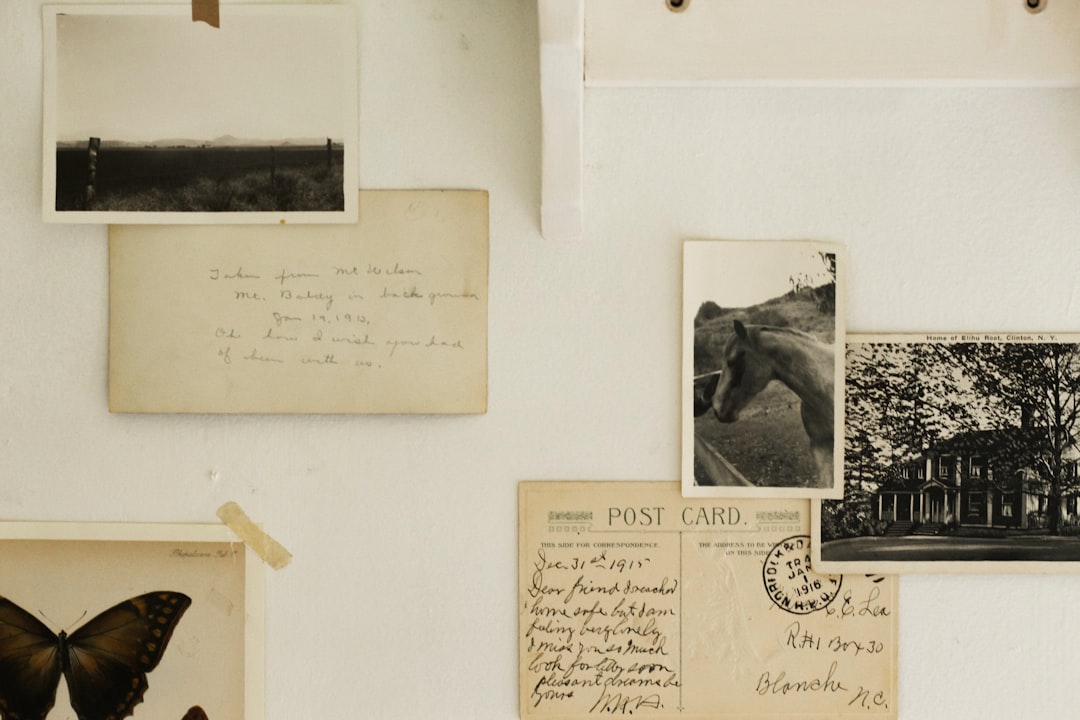 Taken from Mt Wilson
Mt. Baldy in back ground
Jan 19, 1913,
Oh how I wish you had
of been with us.
Home of Elihu Root, Clinton, N. Y.
POST CARD.
THIS SIDE FOR CORRESPONDENCE.
THE ADDRESS TO BE
ON THIS SIDE
Dec. 31st 1915
Dear friend I reached
home safe but I am
feeling very lonely
I miss you so much
look for letter soon
pleasant dreams be
yours
NORFOLK
TRA
JAN
1
1916
C. E. Lea
R.#1 Box 30
Blanche N.C.